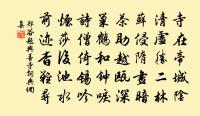 寺在帝城陰
清虛勝二林
蘚侵隋畫暗
茶助越甌深
巢鶴和鐘唳
詩僧倚錫吟
煙莎後池水
前迹杳難尋
鄭谷題興善寺詞典網
集